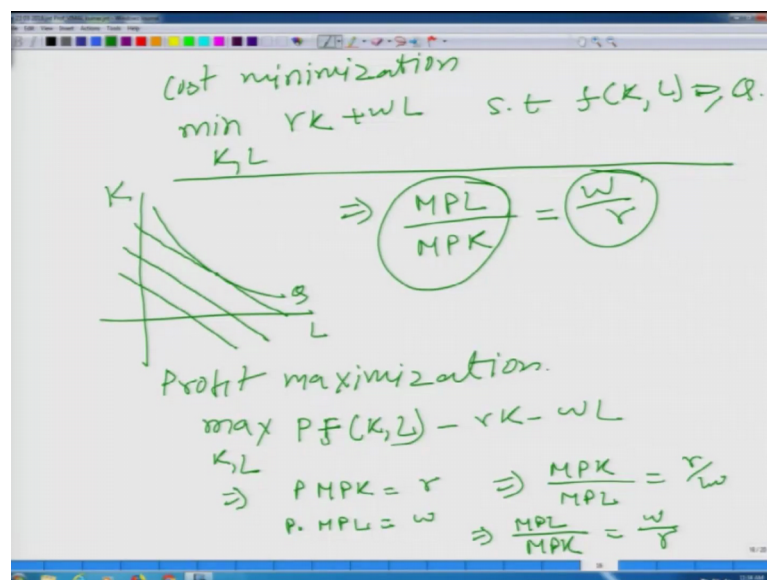 Cost minimization
min rK + wL s.t f(K, L) ⩾ Q.
K, L
⇒ MPL / MPK = w / r
K
Q
L
Profit maximization.
max P f(K, L) - rK - wL
K, L
⇒ P MPK = r ⇒ MPK / MPL = r/w
P. MPL = w ⇒ MPL / MPK = w / r